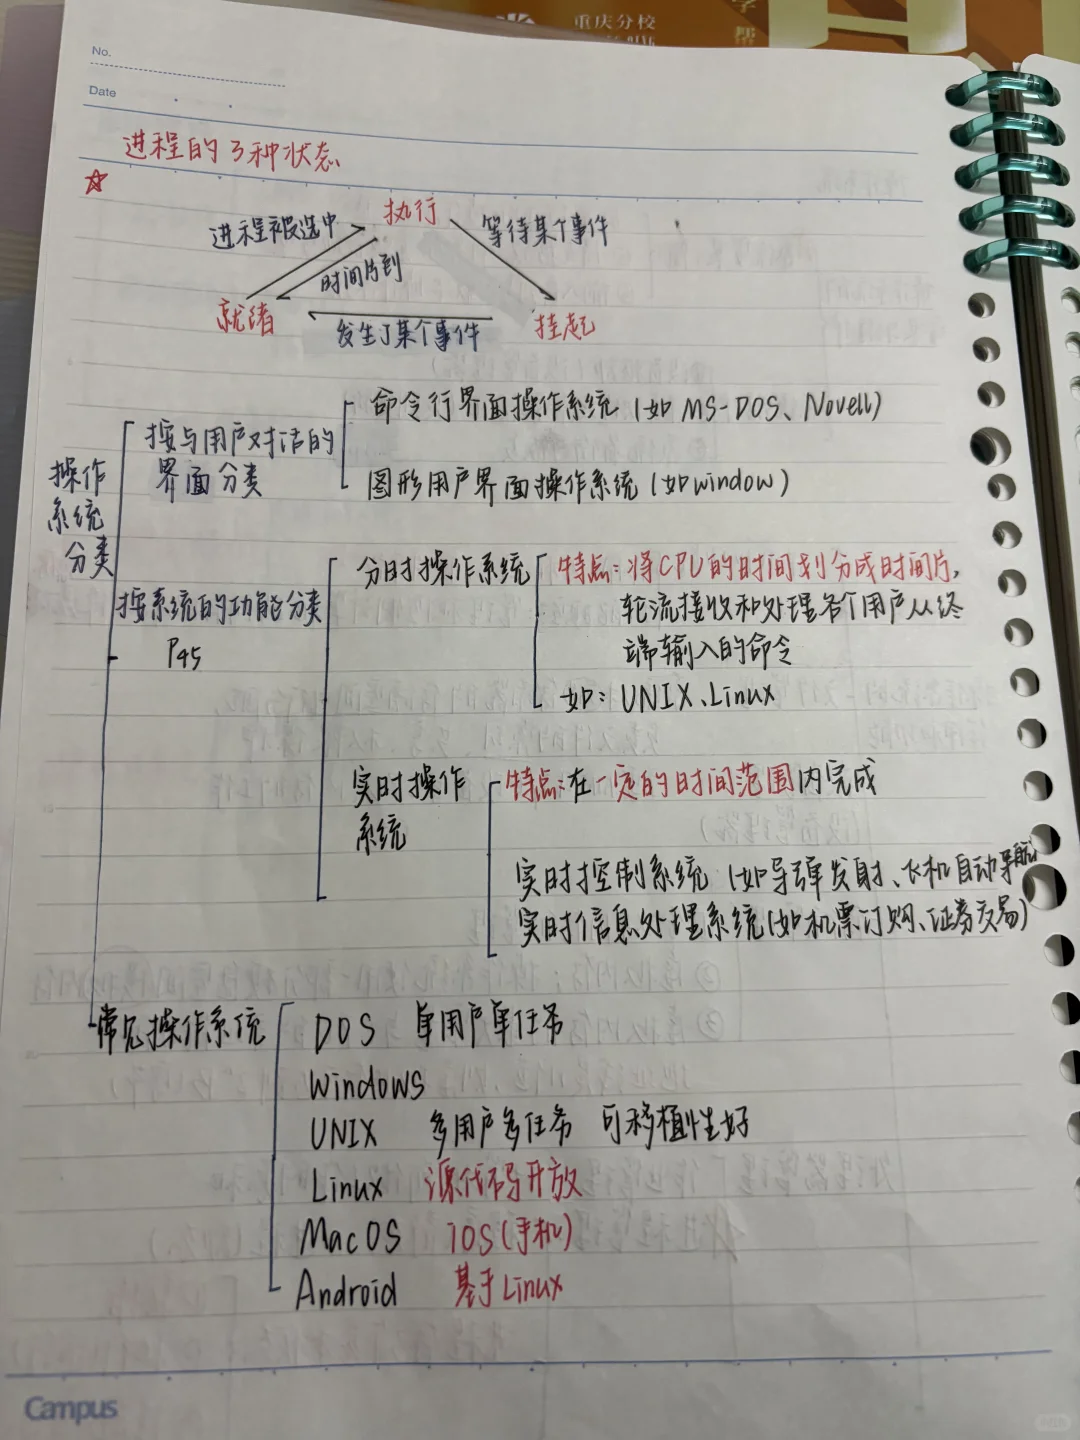 重庆分校
No.
Date
进程的3种状态
☆
执行
进程被选中
等待某个事件
时间片到
就绪
挂起
发生了某个事件
命令行界面操作系统(如MS-DOS、Novell)
按与用户对话的
界面分类
图形用户界面操作系统(如window)
操作
系统
分类
分时操作系统
特点:将CPU的时间划分成时间片,
轮流接收和处理各个用户从终
端输入的命令
如:UNIX、Linux
按系统的功能分类
P45
实时操作
系统
特点:在一定的时间范围内完成
实时控制系统(如导弹发射、飞机自动导航)
实时信息处理系统(如机票订购、证券交易)
常见操作系统
DOS 单用户单任务
Windows
UNIX 多用户多任务 可移植性好
Linux 源代码开放
MacOS IOS(手机)
Android 基于Linux
Campus